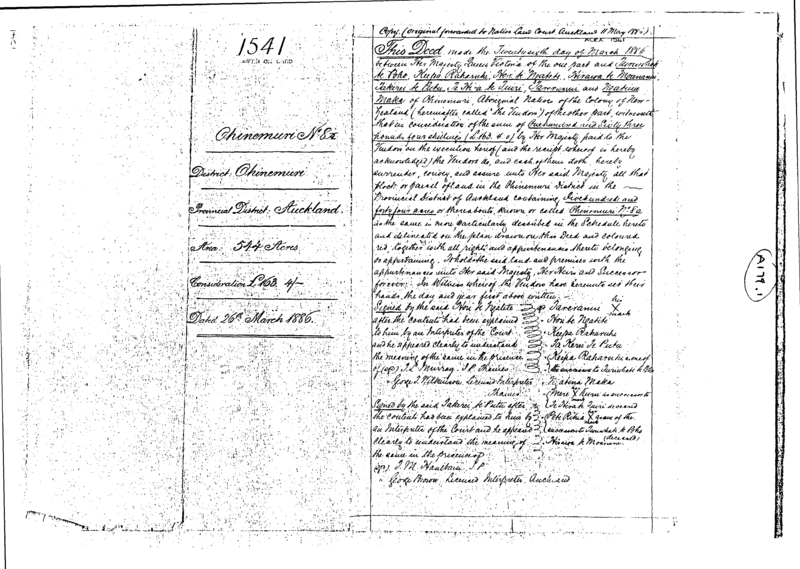 1541
Ohinemuri No 8a
District. Ohinemuri
Provincial District. Auckland.
Area. 544 Acres.
Consideration £163. 4/-
Dated 26th March 1886.
Copy. (original forwarded to Native Land Court Auckland 11 May 1886).
This Deed made the Twentysixth day of March 1886
between Her Majesty Queen Victoria of the one part and
te Poho, Keepa Raharuhi, Hori te Ngatete, Hirawa te Moananui
Takerei te Putu, Te Hira te Tuiri, Taveranui and Ngatina
Maka of Ohinemuri, Aboriginal Natives of the Colony of New
Zealand (hereinafter called "the Vendors") of the other part, witnesseth
that in consideration of the sum of One hundred and Sixty three
pounds four shillings (£163. 4. 0) by Her Majesty paid to the
Vendors on the execution hereof (and the receipt whereof is hereby
acknowledged) the Vendors do, and each of them doth hereby
surrender, convey, and assure unto Her said Majesty all that
block or parcel of land in the Ohinemuri District in the
Provincial District of Auckland containing Five hundred and
forty four acres or thereabouts, known or called Ohinemuri No 8a
as the same is more particularly described in the Schedule hereto
and delineated on the plan drawn on this Deed and coloured
red, together with all rights and appurtenances thereto belonging
or appertaining. To hold the said land and premises with the
appurtenances unto Her said Majesty, Her Heirs and Successors
forever: In Witness whereof the Vendors have hereunto set their
hands, the day and year first above written.
Signed by the said Hori te Ngatete
after the contents had been explained
to him by an Interpreter of the Court
and he appeared clearly to understand
the meaning of the same in the presence
of (sgd) J. L. Murray. J.P. Thames
George T. Wilkinson Licensed Interpreter
Thames
Signed by the said Takerei te Putu after
the contents had been explained to him by
an Interpreter of the Court and he appeared
clearly to understand the meaning of
the same in the presence of
(sgd) J. M. J.P.
" George Brown, Licensed Interpreter, Auckland
Taveranui X his mark
Hori te Ngatete
Keepa Raharuhi
Ta Kerei Te Putu
Keepa Raharuhi as one of
the successors to te Poho
Ngatina Maka
Mere X Kuru as successor to
Te Hira te Tuiri deceased
X as one of the
successors to te Poho
(deceased)
Hirawa te Moananui
A179.1